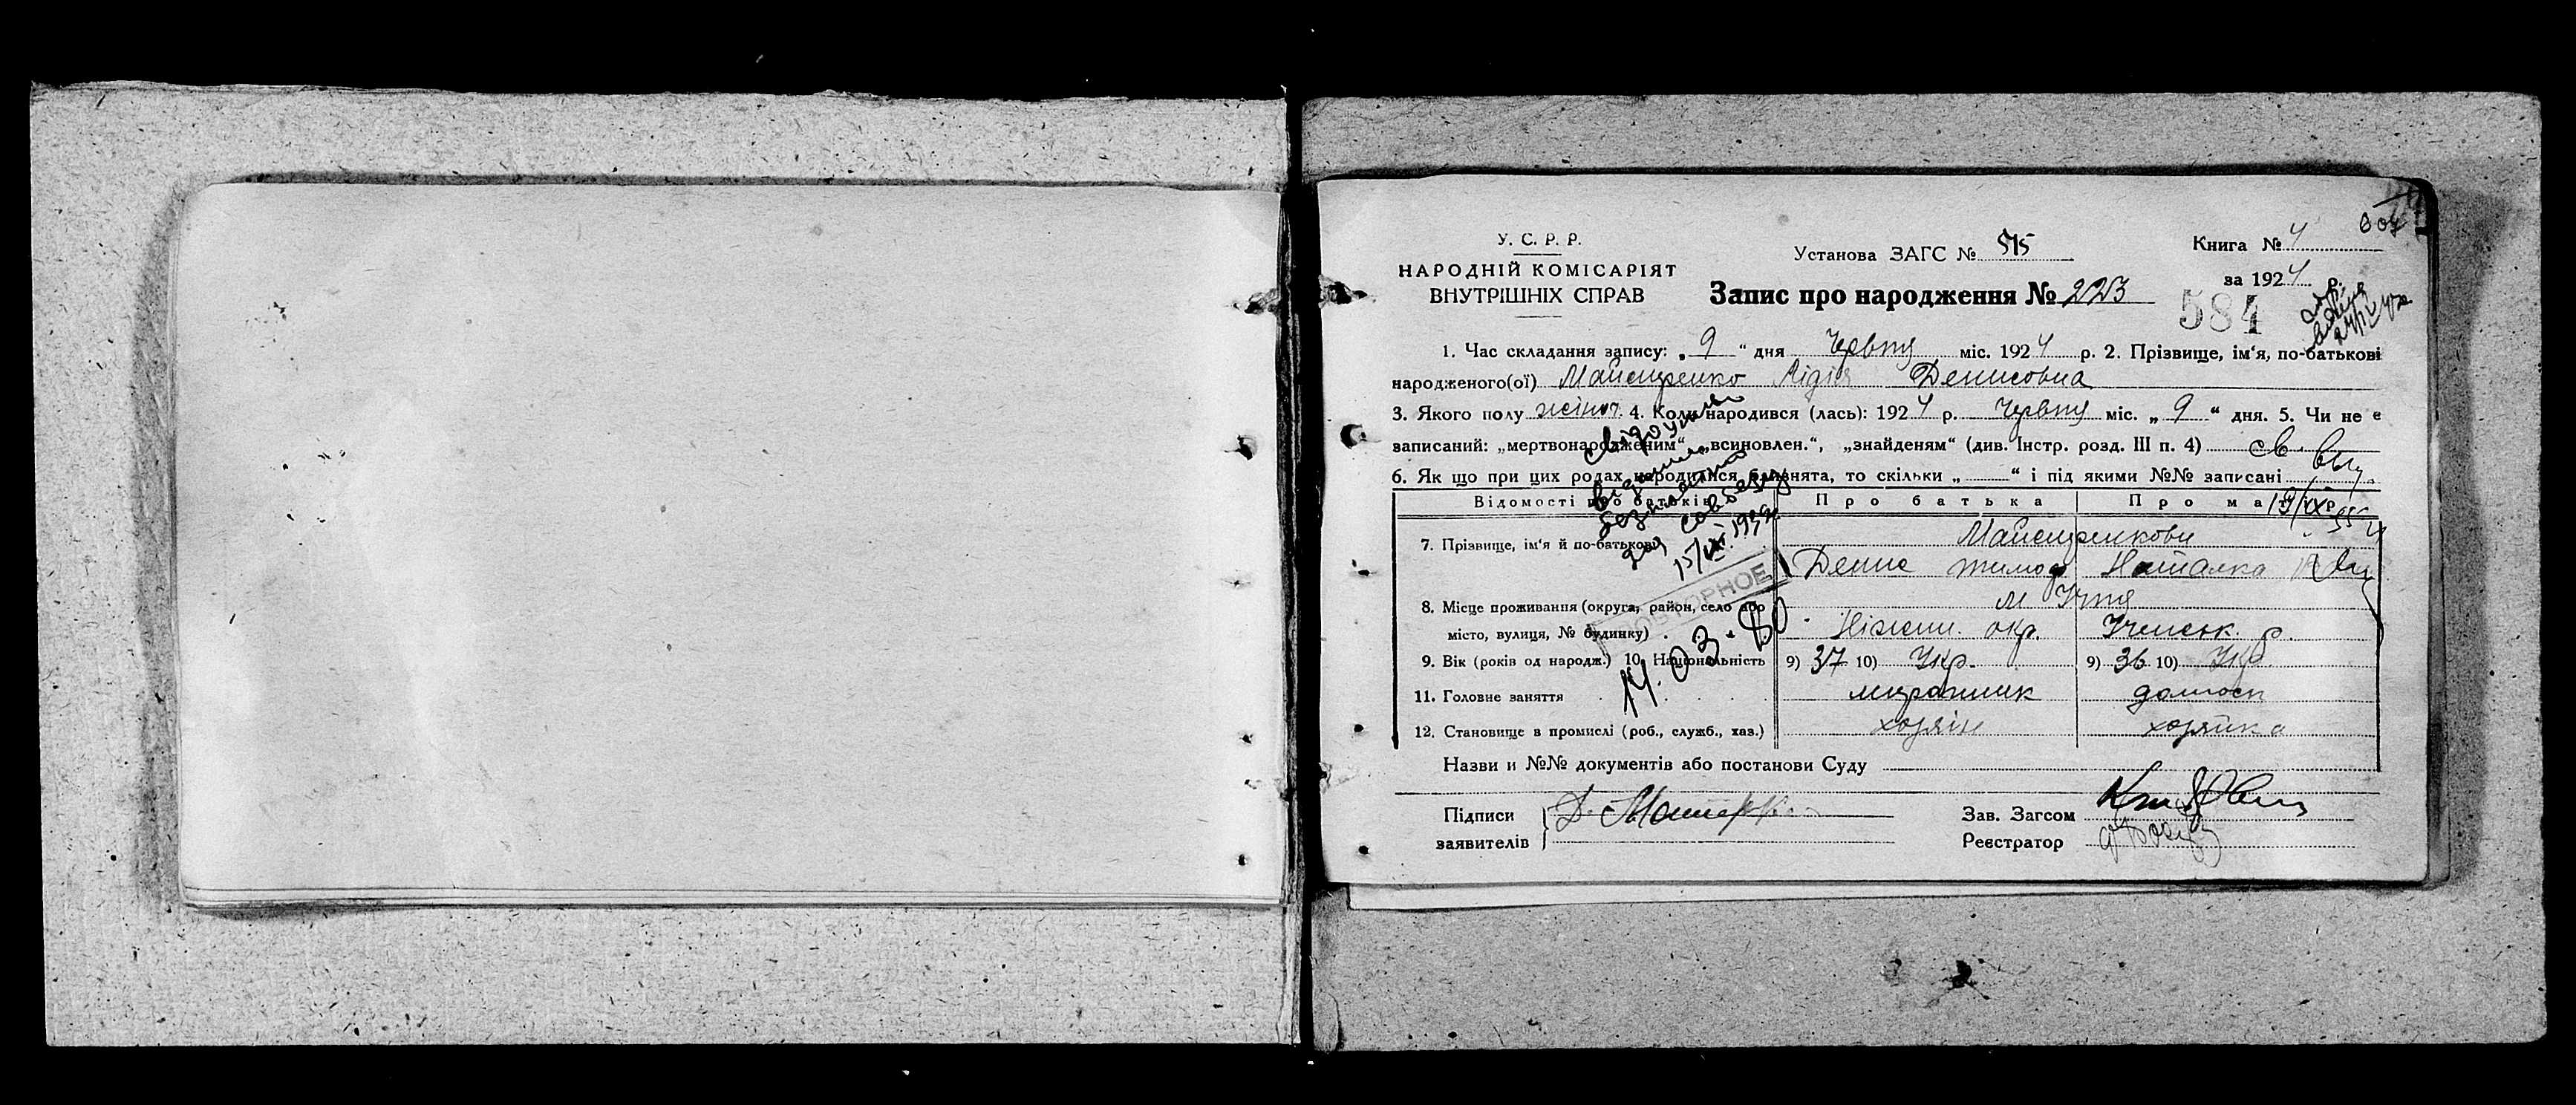 У. С. Р. Р.
НАРОДНІЙ КОМІСАРІЯТ
ВНУТРІШНІХ СПРАВ
Установа ЗАГС № 515
Книга № 4
за 1924 р.
Запис про народження № 223
584
1. Час складання запису: „ 9 “ дня Червня міс. 1924 р. 2. Прізвище, ім‘я, по-батькові
народженого(ої) Лідія Денисовна
3. Якого полу жіноч. 4. Коли народився (лась): 1924 р. Червня міс. „ 9 “ дня. 5. Чи не є
записаний: „мертвонародженим“ „всиновлен.“, „знайденям“ (див. Інстр. розд. III п. 4)
6. Як що при цих родах народитися близнята, то скільки „ “ і під якими №№ записані
Відомості про батьків
Про батька
7. Прізвище, ім‘я й по-батькові
Денис Наталка
8. Місце проживання (округа, район, село або
м Ічня
місто, вулиця, № будинку)
Ніжин. окр. Іченськ. р.
9. Вік (років од народж.) 10. Національність
9) 37 10) Укр. 9) 36 10) Укр
11. Головне заняття
12. Становище в промислі (роб., служб., хаз.)
хозяін хозяйка
ПОВТОРНОЕ
14.03.80
Назви и №№ документів або постанови Суду
Підписи
заявителів
Зав. Загсом
Реєстратор